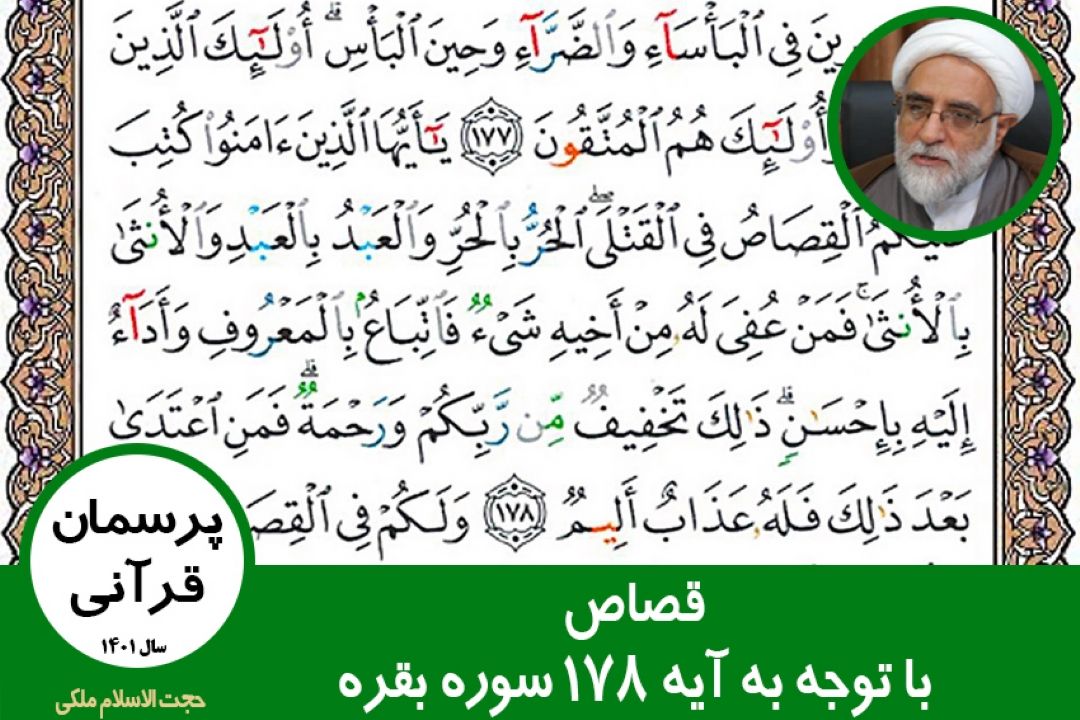 رِينَ فِي ٱلْبَأْسَآءِ وَٱلضَّرَّآءِ وَحِينَ ٱلْبَأْسِ ۗ أُوْلَٰٓئِكَ ٱلَّذِينَ
وَأُوْلَٰٓئِكَ هُمُ ٱلْمُتَّقُونَ ١٧٧ يَٰٓأَيُّهَا ٱلَّذِينَ ءَامَنُوا۟ كُتِبَ
عَلَيْكُمُ ٱلْقِصَاصُ فِي ٱلْقَتْلَى ۖ ٱلْحُرُّ بِٱلْحُرِّ وَٱلْعَبْدُ بِٱلْعَبْدِ وَٱلْأُنثَىٰ
بِٱلْأُنثَىٰ ۚ فَمَنْ عُفِىَ لَهُۥ مِنْ أَخِيهِ شَىْءٌ فَٱتِّبَاعٌۢ بِٱلْمَعْرُوفِ وَأَدَآءٌ
إِلَيْهِ بِإِحْسَٰنٍ ۗ ذَٰلِكَ تَخْفِيفٌ مِّن رَّبِّكُمْ وَرَحْمَةٌ ۗ فَمَنِ ٱعْتَدَىٰ
بَعْدَ ذَٰلِكَ فَلَهُۥ عَذَابٌ أَلِيمٌ ١٧٨ وَلَكُمْ فِي ٱلْقِصَ
پرسمان
قرآنی
سال ۱۴۰۱
حجت الاسلام ملکی
قصاص
با توجه به آیه ۱۷۸ سوره بقره